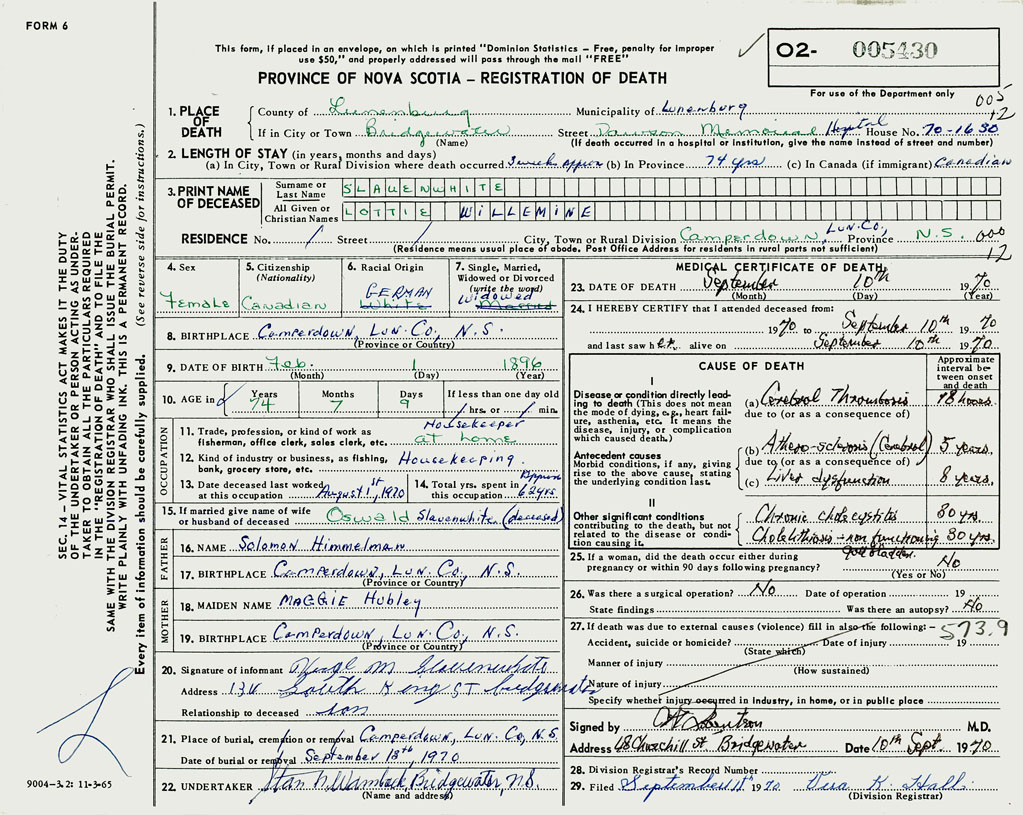 FORM 6
This form, if placed in an envelope, on which is printed "Dominion Statistics – Free, penalty for improper
use $50," and properly addressed will pass through the mail "FREE"
O2- 005430
PROVINCE OF NOVA SCOTIA – REGISTRATION OF DEATH
For use of the Department only
005
12
1. PLACE OF DEATH
County of Lunenburg Municipality of Lunenburg
If in City or Town Bridgewater Street Dawson Memorial Hospital House No. 70-1630
(Name) (If death occurred in a hospital or institution, give the name instead of street and number)
2. LENGTH OF STAY (in years, months and days)
(a) In City, Town or Rural Division where death occurred 3 week approx (b) In Province 74 yrs (c) In Canada (if immigrant) Canadian
3. PRINT NAME OF DECEASED
Surname or Last Name SLAUENWHITE
All Given or Christian Names LOTTIE WILLEMINE
RESIDENCE No. / Street / City, Town or Rural Division Camperdown, Lun. Co, Province N.S.
(Residence means usual place of abode. Post Office Address for residents in rural parts not sufficient)
000
12
4. Sex Female
5. Citizenship (Nationality) Canadian
6. Racial Origin GERMAN White
7. Single, Married, Widowed or Divorced (write the word) Widowed Married
8. BIRTHPLACE Camperdown, Lun. Co, N.S.
(Province or Country)
9. DATE OF BIRTH Feb. 1 1896
(Month) (Day) (Year)
10. AGE in Years 74 Months 7 Days 9 If less than one day old / hrs. or / min.
OCCUPATION
11. Trade, profession, or kind of work as fisherman, office clerk, sales clerk, etc. Housekeeper at home
12. Kind of industry or business, as fishing, bank, grocery store, etc. Housekeeping
13. Date deceased last worked at this occupation August 1st, 1970
14. Total yrs. spent in this occupation Approx 62 yrs
15. If married give name of wife or husband of deceased Oswald Slauenwhite (deceased)
FATHER
16. NAME Solomon Himmelman
17. BIRTHPLACE Camperdown, Lun. Co, N.S.
(Province or Country)
MOTHER
18. MAIDEN NAME MAGGIE Hubley
19. BIRTHPLACE Camperdown, Lun. Co, N.S.
(Province or Country)
20. Signature of informant M Slauenwhite
Address South King ST bridgewater
Relationship to deceased son
21. Place of burial, cremation or removal Camperdown, Lun. Co, N.S.
Date of burial or removal September 13th, 1970
22. UNDERTAKER Bridgewater, N.S.
(Name and address)
MEDICAL CERTIFICATE OF DEATH
23. DATE OF DEATH September 10th 1970
(Month) (Day) (Year)
24. I HEREBY CERTIFY that I attended deceased from:
1970 to September 10th 1970
and last saw her alive on September 10th 1970
CAUSE OF DEATH
Approximate interval between onset and death
I
Disease or condition directly leading to death (This does not mean the mode of dying, e.g., heart failure, asthenia, etc. It means the disease, injury, or complication which caused death.)
(a) Cerebral Thrombosis 48 hours.
due to (or as a consequence of)
Antecedent causes
Morbid conditions, if any, giving rise to the above cause, stating the underlying condition last.
(b) Athero-sclerosis (Cerebral) 5 years.
due to (or as a consequence of)
(c) Liver dysfunction 8 years.
II
Other significant conditions contributing to the death, but not related to the disease or condition causing it.
Chronic cholecystitis 30 yrs.
Cholelithiasis - non functioning gall bladder. 30 yrs.
25. If a woman, did the death occur either during pregnancy or within 90 days following pregnancy? No
(Yes or No)
26. Was there a surgical operation? No Date of operation 19
State findings Was there an autopsy? No
27. If death was due to external causes (violence) fill in also the following: – 573.9
Accident, suicide or homicide? Date of injury 19
(State which)
Manner of injury
(How sustained)
Nature of injury
Specify whether injury occurred in industry, in home, or in public place
Signed by M.D.
Address 48 Churchill St Bridgewater Date 10th Sept. 1970
28. Division Registrar's Record Number
29. Filed September 11th 1970 Vera K. Hall
(Division Registrar)
SEC. 14 – VITAL STATISTICS ACT MAKES IT THE DUTY
OF THE UNDERTAKER OR PERSON ACTING AS UNDER-
TAKER TO OBTAIN ALL THE PARTICULARS REQUIRED
IN THE "REGISTRATION OF DEATH" AND TO FILE THE
SAME WITH THE DIVISION REGISTRAR WHO SHALL ISSUE THE BURIAL PERMIT.
WRITE PLAINLY WITH UNFADING INK. THIS IS A PERMANENT RECORD.
Every item of information should be carefully supplied. (See reverse side for instructions.)
9004–3.2: 11-3-65